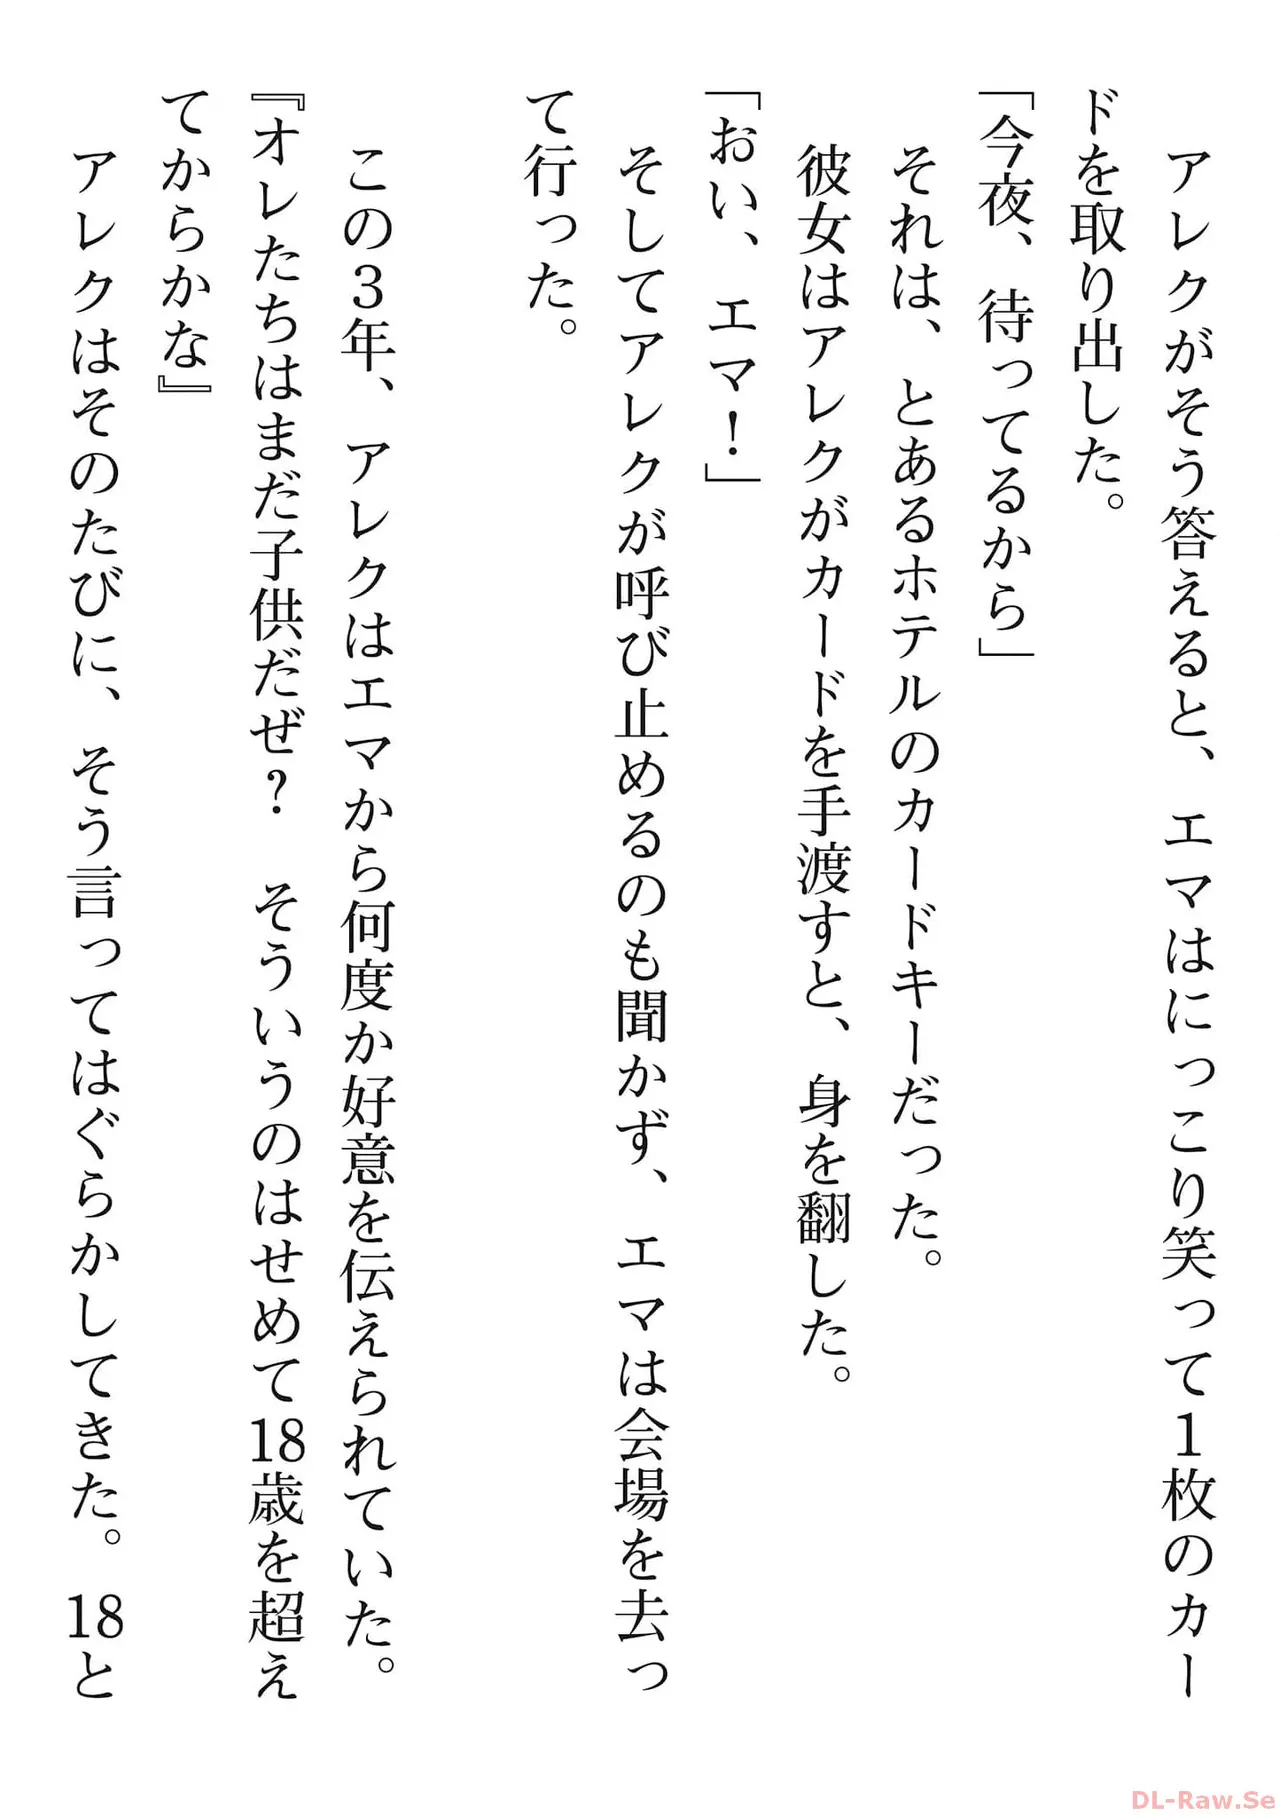 アレクがそう答えると、エマはにっこり笑って１枚のカー
ドを取り出した。
「今夜、待ってるから」
　それは、とあるホテルのカードキーだった。
　彼女はアレクがカードを手渡すと、身を翻した。
「おい、エマ！」
　そしてアレクが呼び止めるのも聞かず、エマは会場を去っ
て行った。
　この３年、アレクはエマから何度か好意を伝えられていた。
『オレたちはまだ子供だぜ？　そういうのはせめて18歳を超え
てからかな』
　アレクはそのたびに、そう言ってはぐらかしてきた。18と
DL-Raw.Se